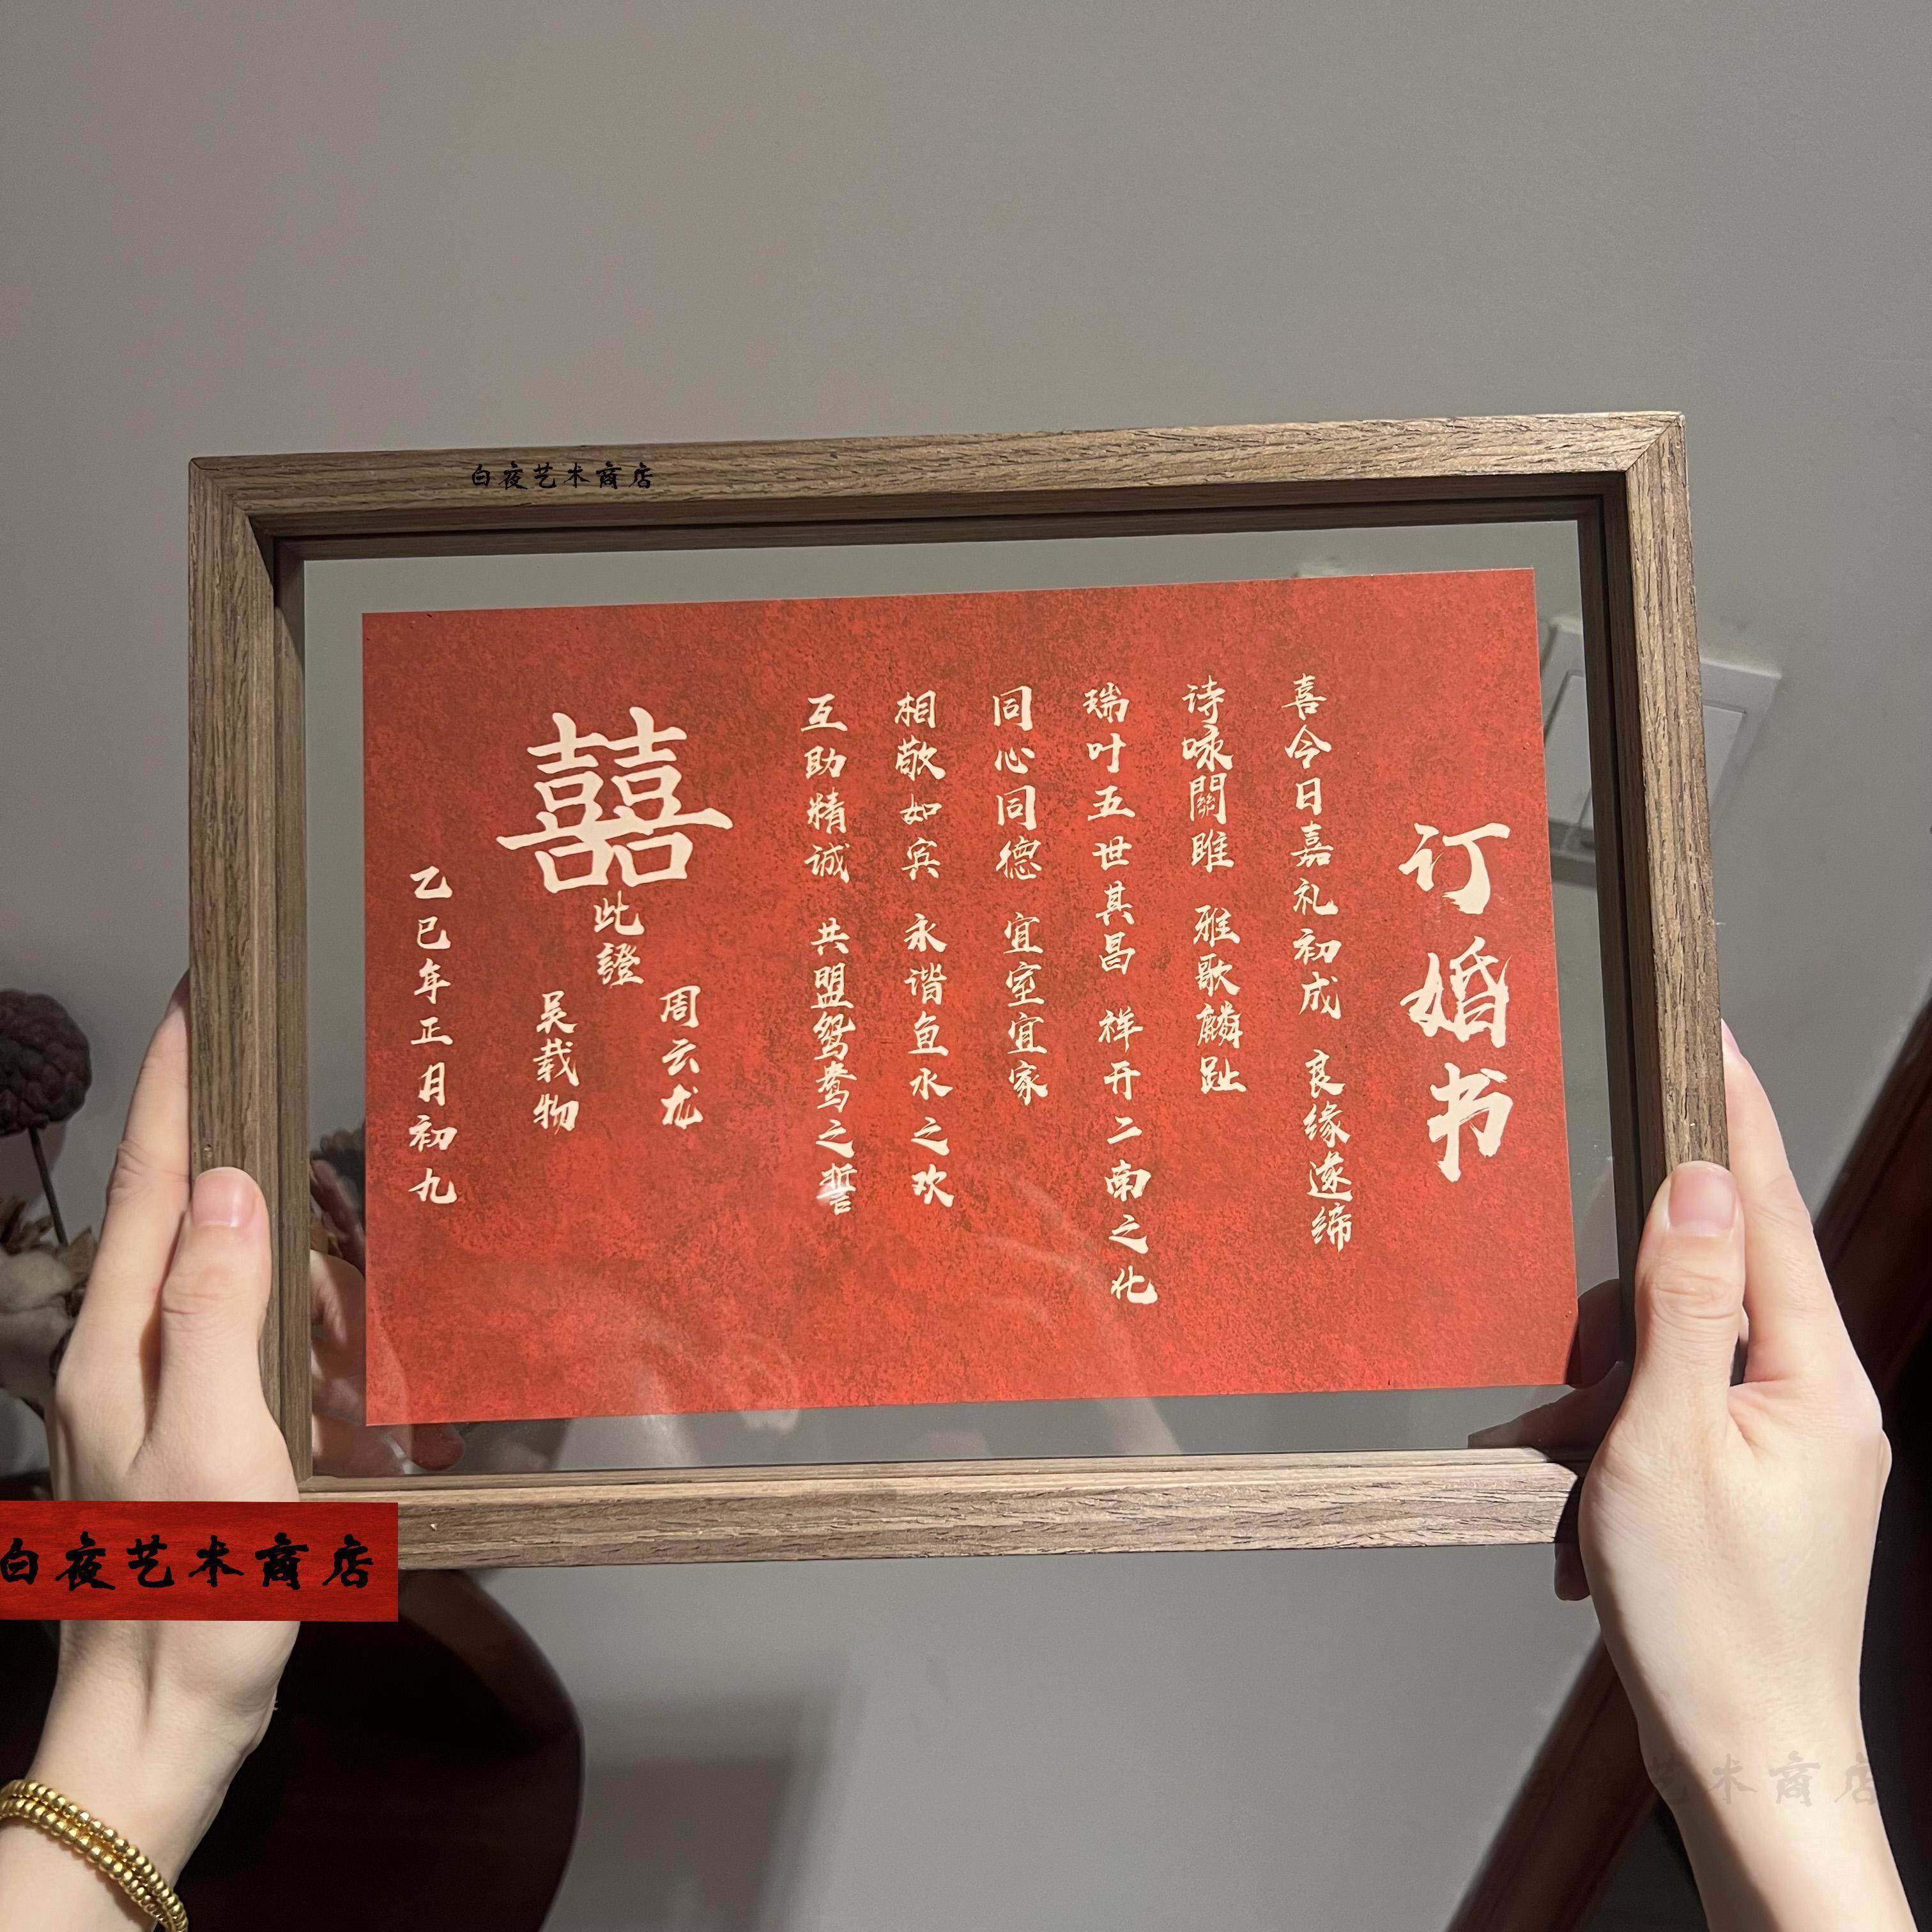 白夜艺术商店
订婚书
喜今日嘉礼初成 良缘遂缔
诗咏關雎 雅歌麟趾
瑞叶五世其昌 祥开二南之化
同心同德 宜室宜家
相敬如宾 永谐鱼水之欢
互助精诚 共盟鸳鸯之誓
囍
此證
周云龙
吴载物
乙巳年正月初九
白夜艺术商店
艺术商店